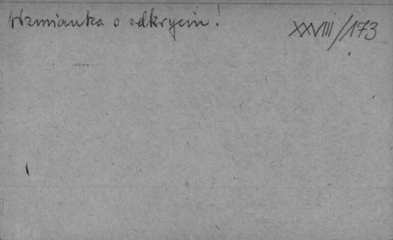 Wzmianka o odkryciu!
XXVIII/173